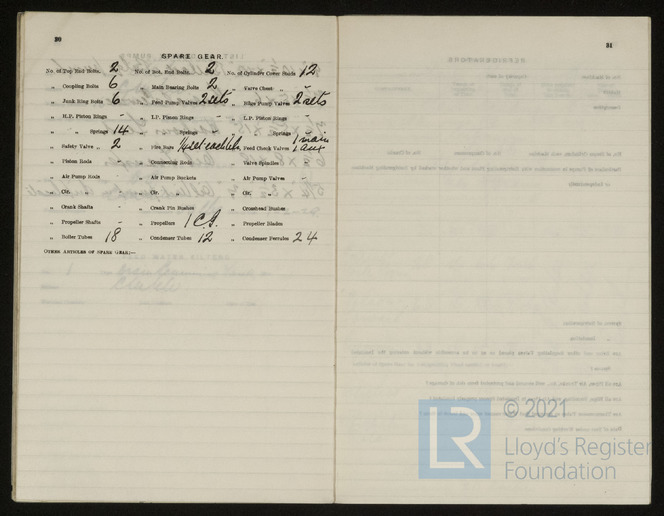 30
SPARE GEAR.
No. of Top End Bolts, 2 No. of Bot. End Bolts, 2 No. of Cylinder Cover Studs 12
„ Coupling Bolts 6 „ Main Bearing Bolts 2 „ Valve Chest „ -
„ Junk Ring Bolts 6 „ Feed Pump Valves 2 sets „ Bilge Pump Valves 2 sets
„ H.P. Piston Rings - „ I.P. Piston Rings - „ L.P. Piston Rings -
„ „ Springs 14 „ „ Springs - „ „ Springs -
„ Safety Valve „ 2 „ Fire Bars „ Feed Check Valves 1 main 1 aux
„ Piston Rods - „ Connecting Rods - „ Valve Spindles -
„ Air Pump Rods - „ Air Pump Buckets - „ Air Pump Valves -
„ Cir. „ - „ Cir. „ - „ Cir. „ -
„ Crank Shafts - „ Crank Pin Bushes - „ Crosshead Bushes -
„ Propeller Shafts - „ Propellers 1 C.I. „ Propeller Blades -
„ Boiler Tubes 18 „ Condenser Tubes 12 „ Condenser Ferrules 24
OTHER ARTICLES OF SPARE GEAR:—
31
LR
© 2021
Lloyd's Register
Foundation